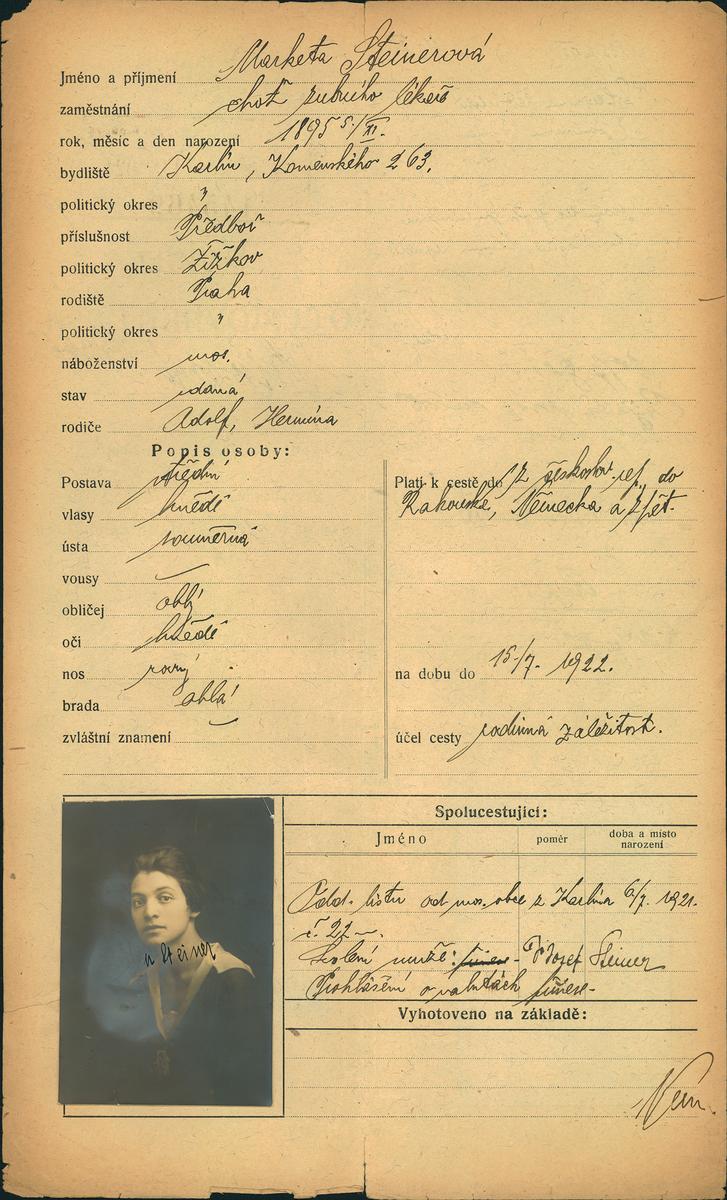 Jméno a příjmení Marketa Steinerová
zaměstnání choť zubního lékaře
rok, měsíc a den narození 1895 5./XI.
bydliště Karlín, Komenského 263.
politický okres "
příslušnost Předboř
politický okres Žižkov
rodiště Praha
politický okres "
náboženství mos.
stav vdaná
rodiče Adolf, Hermína
Popis osoby:
Postava střední
vlasy hnědé
ústa souměrná
vousy
obličej oblý
oči hnědé
nos rovný
brada oblá
zvláštní znamení
Platí k cestě do z českoslov. rep. do
Rakouska, Německa a zpět.
na dobu do 15/7. 1922.
účel cesty rodinná záležitost.
Spolucestující:
Jméno poměr doba a místo narození
Odd. listu od mos. obce z Karlína 6/7. 1921.
č. 22
Svolení muže: Josef Steiner
Prohlášení o valutách
Vyhotoveno na základě:
Steiner